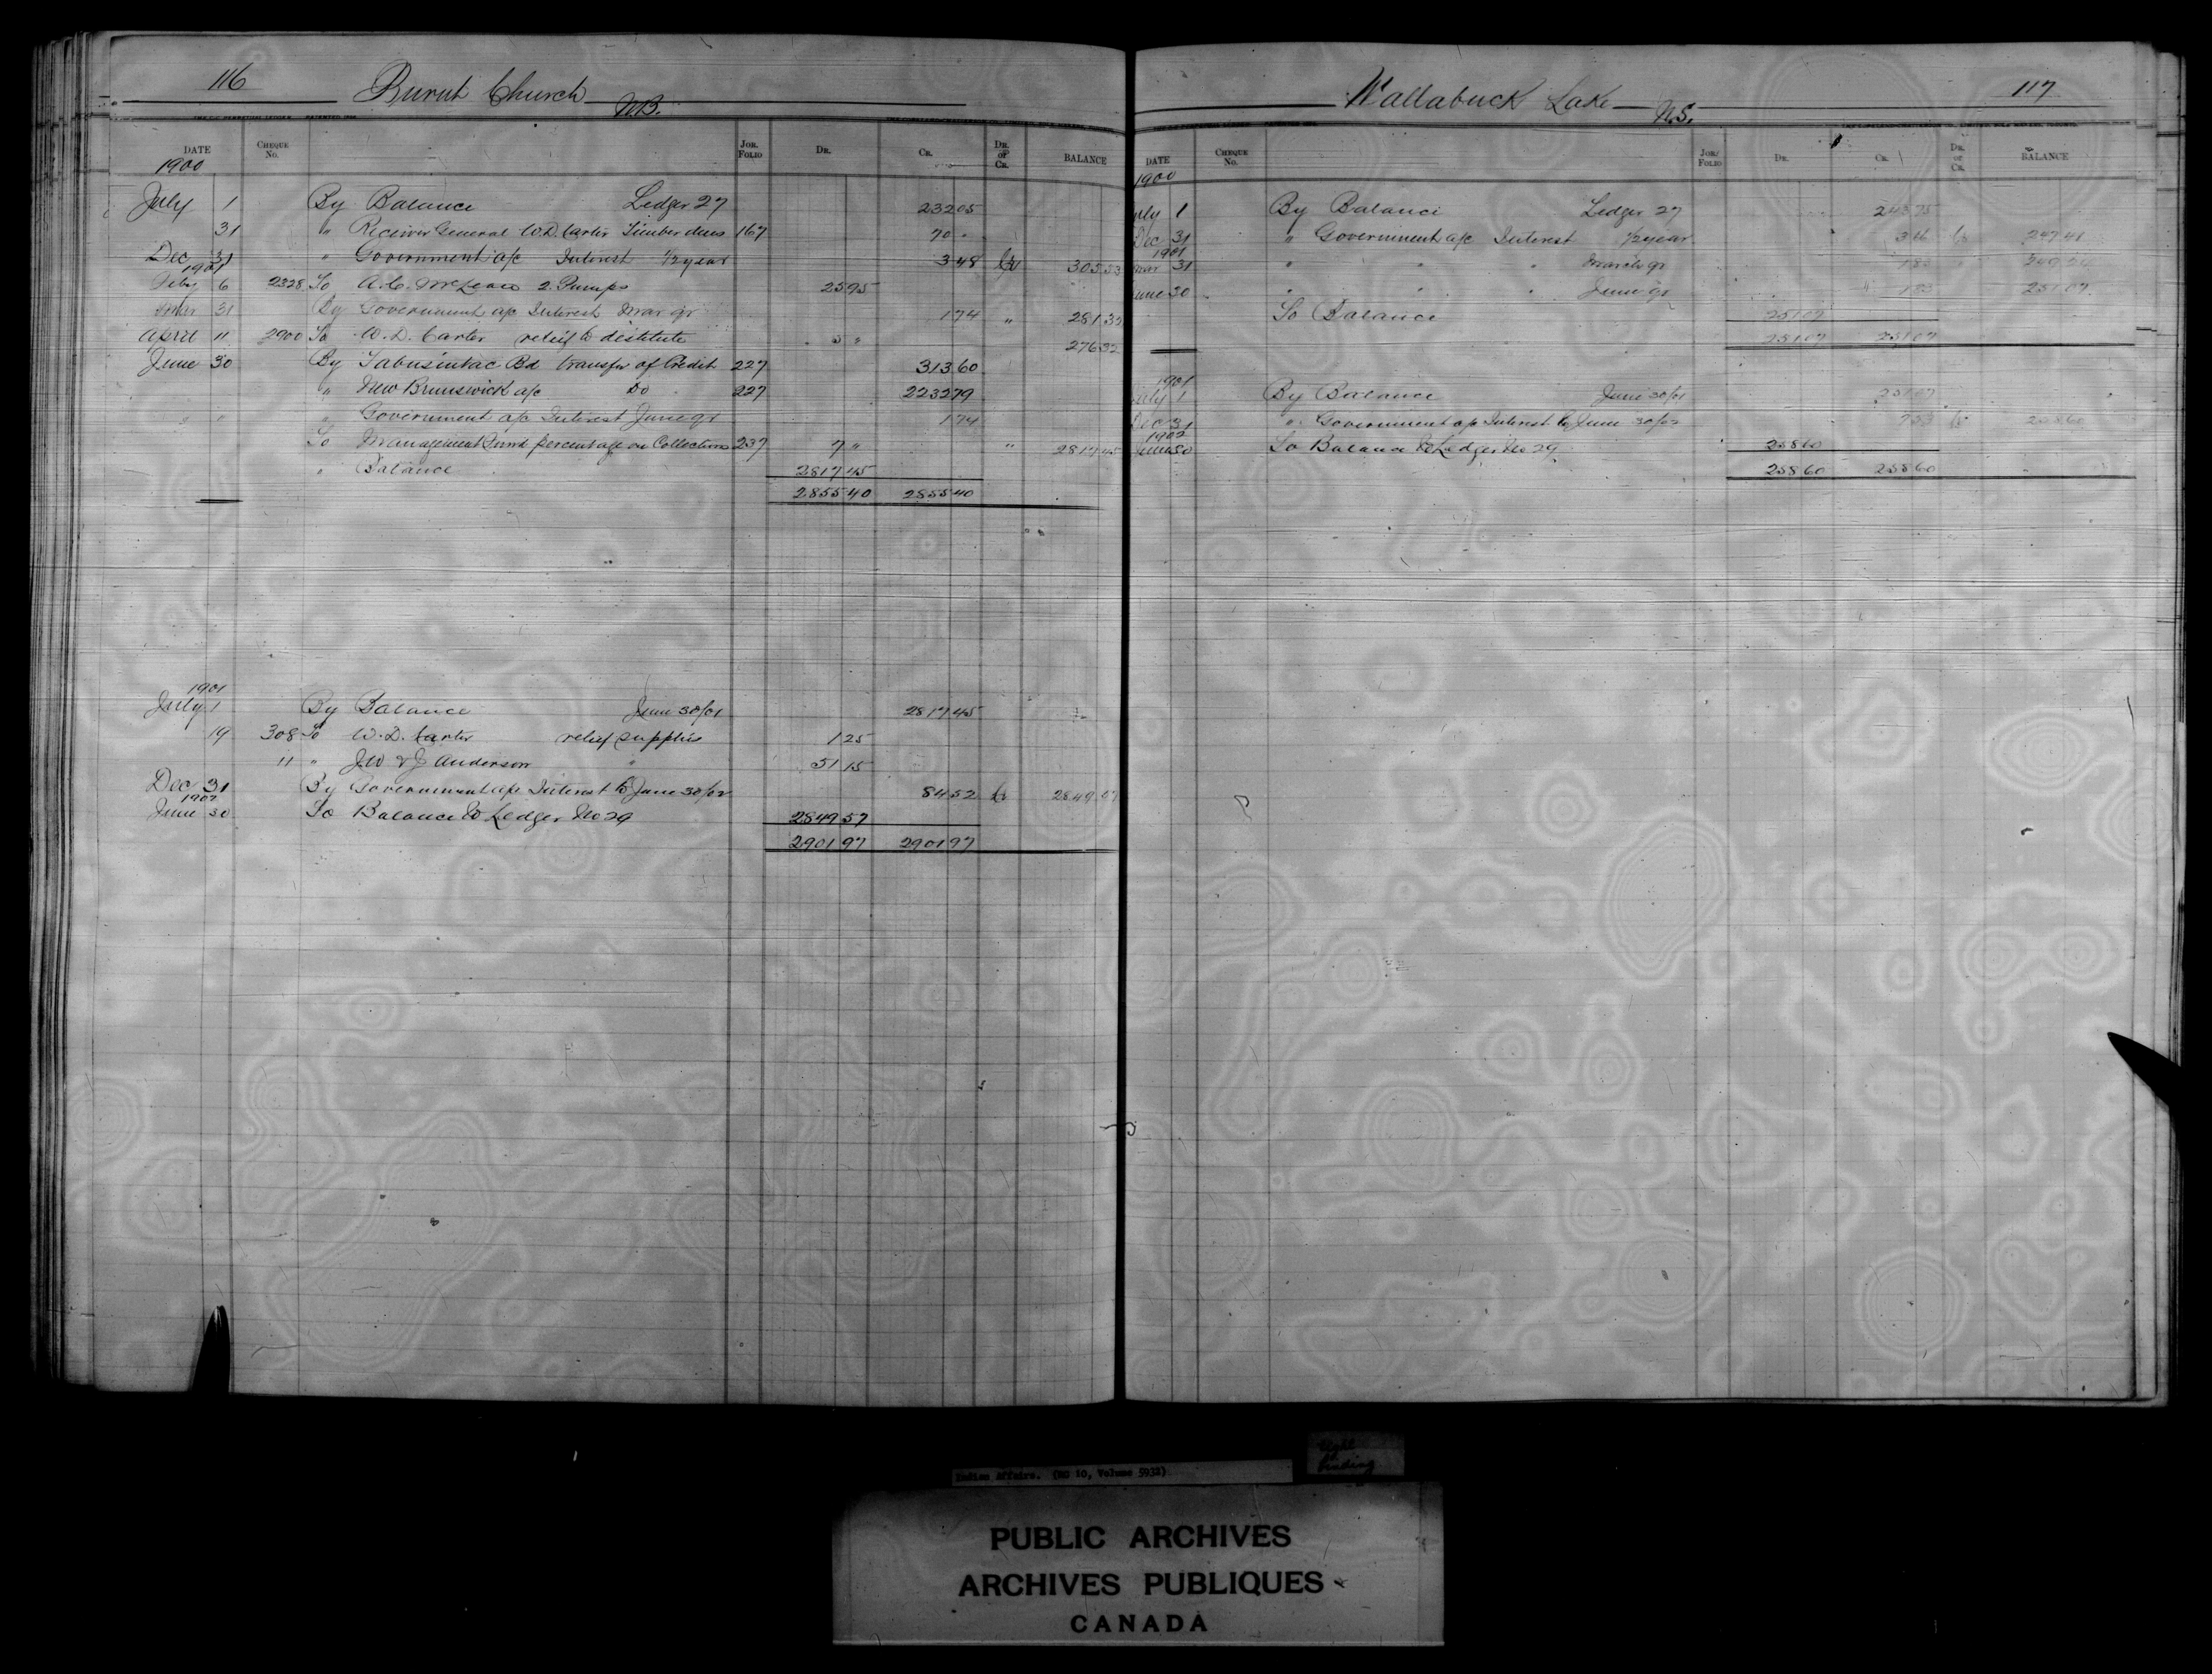 116 Burnt Church N.B.
DATE CHEQUE No. JOR. FOLIO DR. CR. DR. or CR. BALANCE
1900
July 1 By Balance Ledger 27 232 05
31 " Receiver General W.D. Carter Timber dues 167 70 "
Dec 31 " Government a/c Interest 1/2 year 3 48 Cr 305 53
1901
Feby 6 2328 To A.C. McLean 2 Pumps 25 95
Mar 31 By Government a/c Interest Mar qr 1 74 " 281 32
April 11 2900 To W.D. Carter relief to destitute 5 " 276 32
June 30 By Tabusintac Bd transfer of Credit 227 313 60
" New Brunswick a/c Do 227 2232 79
" " " Government a/c Interest June qr 1 74
To Management Fund percentage on Collections 237 7 " " 2817 45
" Balance 2817 45
2855 40 2855 40
1901
July 1 By Balance June 30/01 2817 45
19 308 To W.D. Carter relief supplies 1 25
11 " J.W & J Anderson " 51 15
Dec 31 By Government a/c Interest to June 30/02 84 52 Cr 2849 57
1902
June 30 To Balance to Ledger No 29 2849 57
2901 97 2901 97
Wallabuck Lake N.S. 117
DATE CHEQUE No. JOR. FOLIO DR. CR. DR. or CR. BALANCE
1900
July 1 By Balance Ledger 27 243 75
Dec 31 " Government a/c Interest 1/2 year 3 66 Cr 247 41
1901
Mar 31 " " " March qr 1 83 " 249 24
June 30 " " " June qr 1 83 " 251 07
To Balance 251 07
251 07 251 07
1901
July 1 By Balance June 30/01 251 07
Dec 31 " Government a/c Interest to June 30/02 7 53 Cr 258 60
1902
June 30 To Balance to Ledger No 29 258 60
258 60 258 60
Indian Affairs. (RG 10, Volume 5932)
binding
PUBLIC ARCHIVES
ARCHIVES PUBLIQUES
CANADA